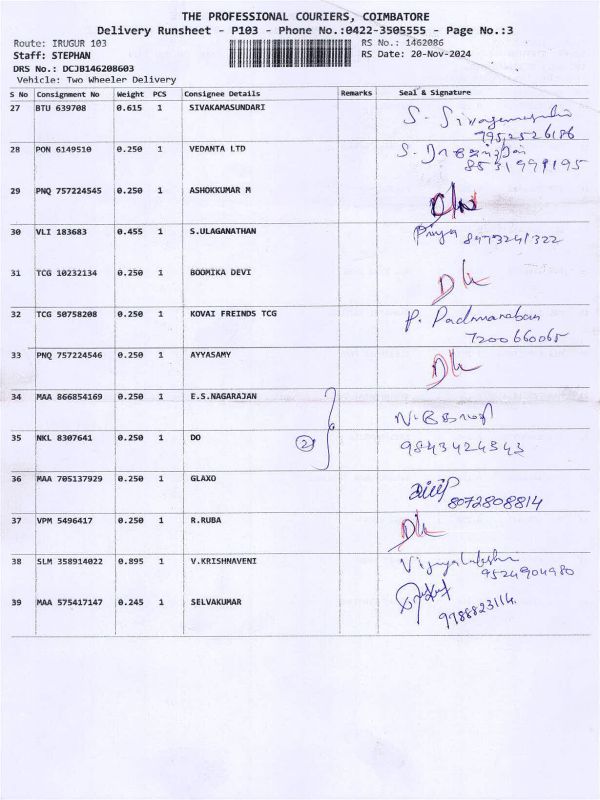 THE PROFESSIONAL COURIERS, COIMBATORE
Delivery Runsheet - P103 - Phone No.:0422-3505555 - Page No.:3
Route: IRUGUR 103 RS No.: 1462086
Staff: STEPHAN RS Date: 20-Nov-2024
DRS No.: DCJB146208603
Vehicle: Two Wheeler Delivery
S No Consignment No Weight PCS Consignee Details Remarks Seal & Signature
27 BTU 639708 0.615 1 SIVAKAMASUNDARI S.
7952526186
28 PON 6149510 0.250 1 VEDANTA LTD S.
8531999195
29 PNQ 757224545 0.250 1 ASHOKKUMAR M
30 VLI 183683 0.455 1 S.ULAGANATHAN Priya 8973241322
31 TCG 10232134 0.250 1 BOOMIKA DEVI
32 TCG 50758208 0.250 1 KOVAI FREINDS TCG P. Padmanaban
7200660065
33 PNQ 757224546 0.250 1 AYYASAMY
34 MAA 866854169 0.250 1 E.S.NAGARAJAN
35 NKL 8307641 0.250 1 DO 2 9843424343
36 MAA 705137929 0.250 1 GLAXO
8072808814
37 VPM 5496417 0.250 1 R.RUBA
38 SLM 358914022 0.895 1 V.KRISHNAVENI
9524904980
39 MAA 575417147 0.245 1 SELVAKUMAR
9788823114